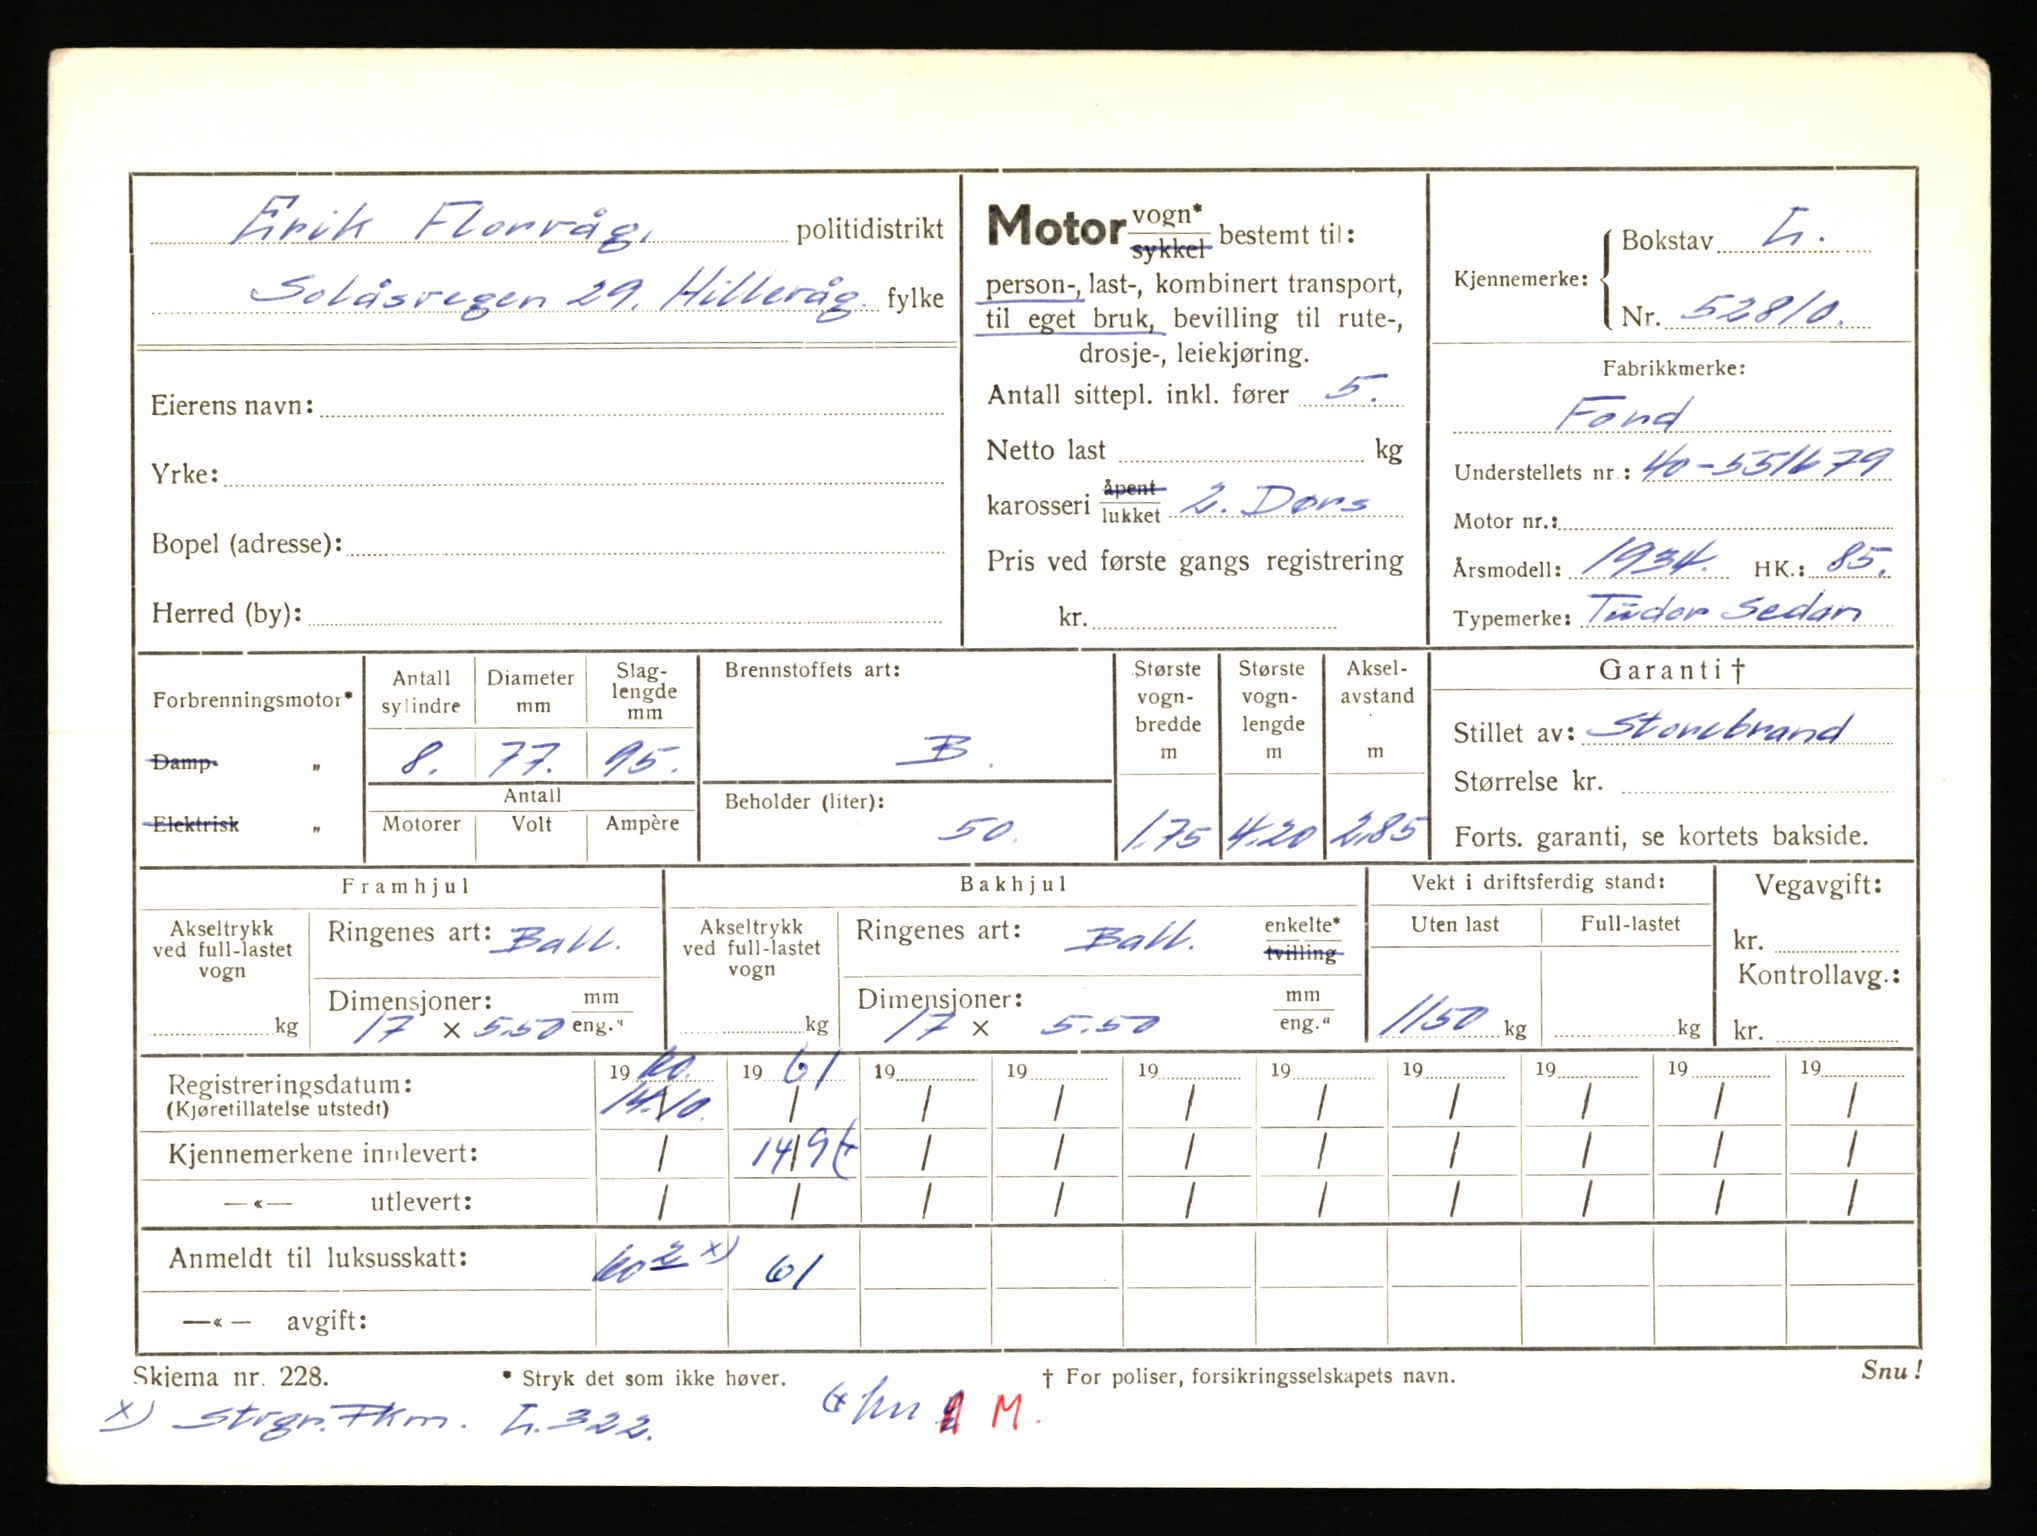 Erik Florvåg, politidistrikt
Solåsvegen 29. Hillevåg. fylke
Eierens navn:
Yrke:
Bopel (adresse):
Herred (by):
Motor vogn*
sykkel bestemt til:
person-, last-, kombinert transport,
til eget bruk, bevilling til rute-,
drosje-, leiekjøring.
Antall sittepl. inkl. fører 5.
Netto last kg
karosseri åpent
lukket 2. Dørs
Pris ved første gangs registrering
kr.
Kjennemerke:
Bokstav L.
Nr. 52810.
Fabrikkmerke:
Ford
Understellets nr.: 40-551679
Motor nr.:
Årsmodell: 1934. HK.: 85.
Typemerke: Tudor Sedan
Forbrenningsmotor*
Damp- „
Elektrisk „
Antall sylindre
8.
Diameter mm
77.
Slag-
lengde
mm
95.
Antall
Motorer Volt Ampère
Brennstoffets art:
B.
Beholder (liter):
50.
Største
vogn-
bredde
m
1.75
Største
vogn-
lengde
m
4.20
Aksel-
avstand
m
2.85
Garanti †
Stillet av: Storebrand
Størrelse kr.
Forts. garanti, se kortets bakside.
Framhjul
Akseltrykk
ved full-lastet
vogn
kg
Ringenes art: Ball.
Dimensjoner: mm
17 x 5.50 eng."
Bakhjul
Akseltrykk
ved full-lastet
vogn
kg
Ringenes art: Ball. enkelte*
tvilling
Dimensjoner: mm
17 x 5.50 eng."
Vekt i driftsferdig stand:
Uten last Full-lastet
1150 kg kg
Vegavgift:
kr.
Kontrollavg.:
kr.
Registreringsdatum: 19 60. 19 61 19 19 19 19 19 19 19 19
(Kjøretillatelse utstedt) 14/10. / / / / / / / / /
Kjennemerkene innlevert: / 14/9 / / / / / / / /
—«— utlevert: / / / / / / / / / /
Anmeldt til luksusskatt: 60 2 x) 61
—«— avgift:
Skjema nr. 228. * Stryk det som ikke høver. † For poliser, forsikringsselskapets navn. Snu!
x) Strgr. Fkm. L.322.
M.